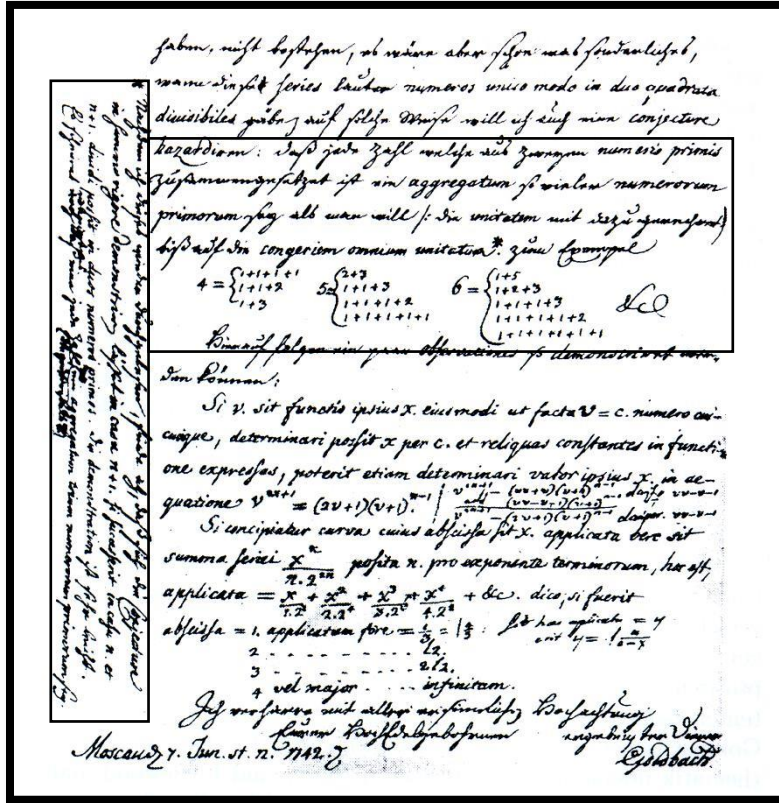 haben, nicht bestehen, es wäre aber schon was sonderliches,
wann diese series lauter numeros unico modo in duo quadrata
divisibiles gäbe, auf solche Weise will ich auch eine conjecture
hazardiren: daß jede Zahl welche aus zweyen numeris primis
zusammengesetzet ist ein aggregatum so vieler numerorum
primorum sey als man will /: die unitatem mit dazu gerechnet)
biß auf die congeriem omnium unitatum*. zum Exempel
4 = { 1+1+1+1
1+1+2
1+3
5 = { 2+3
1+1+3
1+1+1+2
1+1+1+1+1
6 = { 1+5
1+2+3
1+1+1+3
1+1+1+1+2
1+1+1+1+1+1
&c
Hierauf folgen ein paar observationes so demonstriret wer-
den können:
Si v. sit functio ipsius x. eiusmodi ut facta v = c. numero cui-
cunque, determinari possit x per c. et reliquas constantes in functi-
one expressas, poterit etiam determinari valor ipsius x. in ae-
quatione v^{2n+1} = (2v+1)(v+1)^{n-1}
Si concipiatur curva cuius abscissa sit x. applicata vero sit
summa seriei x^n/(n.2^{2n}) posita n. pro exponente terminorum, hoc est,
applicata = x/(1.2^2) + x^2/(2.2^4) + x^3/(3.2^6) + x^4/(4.2^8) + &c. dico, si fuerit
abscissa = 1. applicatam fore = l4/3
2 . . . . . . . l2.
3 . . . . . . . 2l2.
4 vel major . . . infinitam.
Ich verharre mit aller ersinnlichen Hochachtung
Eurer HochEdelgebohrnen ergebenster Diener
Moscau d. 7. Jun. st. n. 1742. Goldbach.
* Nachdem ich dieses wieder durchgelesen, finde ich, daß sich die conjecture
in summo rigore demonstriren lässet in casu n+1. si successerit in casu n. et
n+1. dividi possit in duos numeros primos. Die demonstration ist sehr leicht.
Es scheinet daß eine jede Zahl ein aggregatum trium numerorum primorum sey.